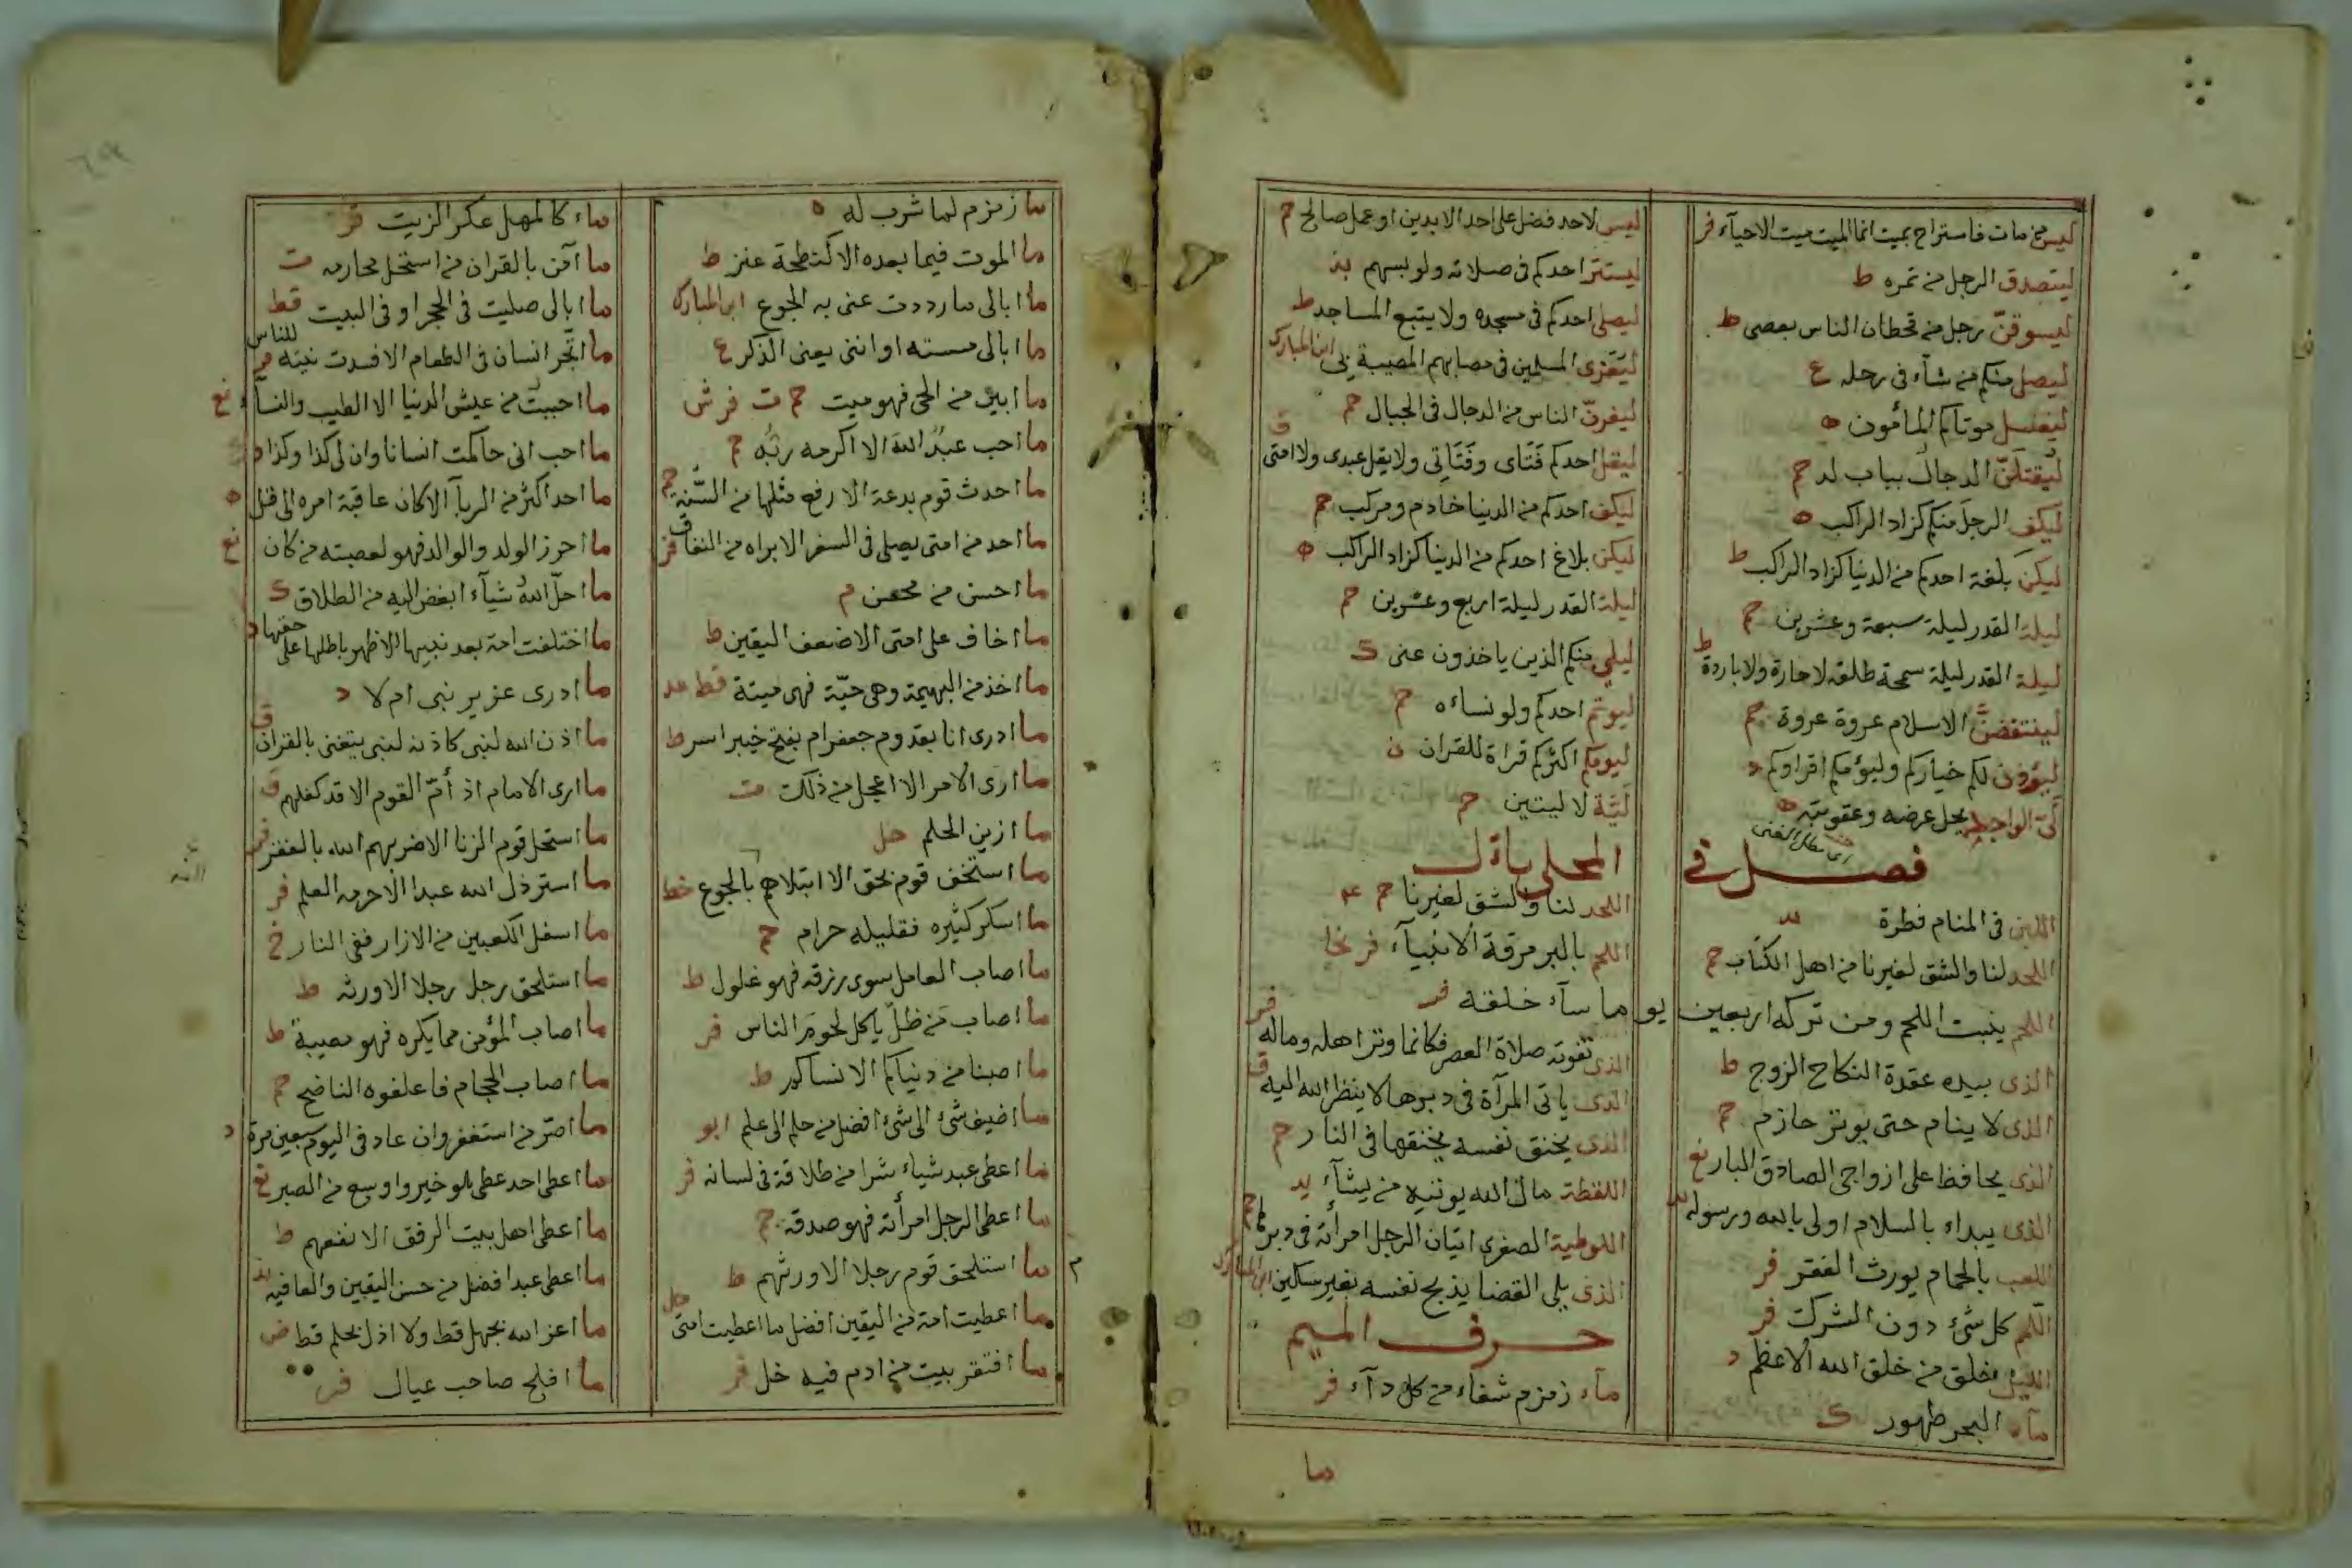 ليس من مات فاستراح بميت انما الميت ميت الاحيآء فر
ليتصدق الرجل من تمره ط
ليسوقنّ رجل من قحطان الناس بعصى ط
ليصل منكم من شآء فى رحله ع
ليغسل موتاكم المأمون ه
ليقتلنّ الدجال بباب لد حم
ليكف الرجل منكم كزاد الراكب ه
ليكن بلغة احدكم من الدنيا كزاد الراكب ط
ليلة القدر ليلة سبعة وعشرين حم
ليلة القدر ليلة سمحة طلقه لا حارة ولا باردة ط
لينتقضنّ الاسلام عروة عروة حم
ليؤذن لكم خياركم وليؤمكم اقراوكم د
لىّ الواجد يحل عرضه وعقوبته ه
اى مطل الغنى
فصل فى
اللبن فى المنام فطرة
اللحد لنا والشق لغيرنا من اهل الكتاب حم
اللحم ينبت اللحم ومن تركه اربعين يوما سآء خلقه فر
الذى بيده عقدة النكاح الزوج ط
الذى لا ينام حتى يوتر حازم حم
الذى يحافظ على ازواجى الصادق البار
الذى يبداء بالسلام اولى بالله ورسوله
اللعب بالحمام يورث الفقر فر
اللمم كل شئ دون الشرك فر
الليل خلق من خلق الله الاعظم د
مآء البحر طهور ك
ليس لاحد فضل على احد الا بدين او عمل صالح حم
ليستتر احدكم فى صلاته ولو بسهم
ليصلى احدكم فى مسجده ولا يتبع المساجد ط
ليعزى المسلمين فى مصابهم المصيبة بى ابن المبارك
ليفرنّ الناس من الدجال فى الجبال حم
ليقل احدكم فَتَاى وفَتَاتِى ولا يقل عبدى ولا امتى ق
ليكف احدكم من الدنيا خادم ومركب حم
ليكن بلاغ احدكم من الدنيا كزاد الراكب ه
ليلة القدر ليلة اربع وعشرين حم
ليلي منكم الذين ياخذون عنى ك
ليوتم احدكم ولو نساءه
ليومكم اكثركم قراة للقران ن
لَيَّة لا ليتين حم
المحلى بأل
اللحد لنا والشق لغيرنا حم
اللحم بالبر مرقة الانبيآء فر
الذى تفوته صلاة العصر فكانما وتر اهله وماله
الذى ياتى المرآة فى دبرها لا ينظر الله اليه
الذى يخنق نفسه يخنقها فى النار حم
اللقطة مال الله يوتيه من يشآء
اللوطية الصغرى اتيان الرجل امرأته فى دبرها حم
الذى يلى القضا يذبح نفسه بغير سكين
حرف الميم
مآء زمزم شفاء من كل دآء فر
ما
ما زمزم لما شرب له ه
ما الموت فيما بعده الا كنطحة عنز ط
ما ابالى ما رددت عنى به الجوع ابن المبارك
ما ابالى مسسته او انفى يعنى الذكر ع
ما ابين من الحى فهو ميت حم ت فر ش
ما احب عبدٌ الله الا اكرمه ربُّه حم
ما احدث قوم بدعة الا رفع مثلها من السّنة حم
ما احد من امتى يصلى فى السفر الا براه من النفاق فر
ما احسن من محسن م
ما اخاف على امتى الا ضعف اليقين ط
ما اخذ من البهيمة وهى حيّة فهى ميتة قط عد
ما ادرى انا بقدوم جعفر ام بفتح خيبر اسر ط
ما ارى الامر الا اعجل من ذلك ت
ما ازين الحلم حل
ما استخف قوم بحق الا ابتلاهم بالجوع خط
ما اسكر كثيره فقليله حرام حم
ما اصاب العامل سوى رزقه فهو غلول ط
ما اصاب من ظلّ ياكل لحوم الناس فر
ما اصبنا من دنياكم الا نساكم ط
ما اضيف شئ الى شئ افضل من حلم الى علم ابو
ما اعطى عبد شياء شرا من طلاقة فى لسانه فر
ما اعطى الرجل امرأته فهو صدقة حم
ما استلحق قوم رجلا الا ورثهم ط
ما اعطيت امة من اليقين افضل ما اعطيت امتى
ما افتقر بيت من ادم فيه خل فر
ماء كالمهل عكر الزيت فر
ما آمن بالقران من استحل محارمه ت
ما ابالى صليت فى الحجر او فى البيت قط
ما اتّجر انسان فى الطعام الا فسدت نيته للناس
ما احببت من عيش الدنيا الا الطيب والنسآء
ما احب انى حاكمت انسانا وان لى كذا وكذا د
ما احد اكثر من الربآ الا كان عاقبة امره الى قل ه
ما احرز الولد والوالد فهو لعصبته من كان
ما احلّ الله شيآء ابغض اليه من الطلاق ك
ما اختلفت امة بعد نبيها الا ظهر باطلها على حقها
ما ادرى عزير نبى ام لا د
ما اذن الله لنبى كاذنه لنبى يتغنى بالقران ق
ما ارى الامام اذ أمّ القوم الا قد كفاهم
ما استحل قوم الزنا الا ضربهم الله بالفقر فر
ما استرذل الله عبدا الا حرمه العلم فر
ما اسفل الكعبين من الازار ففى النار خ
ما استلحق رجل رجلا الا ورثه ط
ما اصاب المؤمن مما يكره فهو مصيبة ط
ما اصاب الحجام فاعلفوه الناضح حم
ما اصرّ من استغفر وان عاد فى اليوم سبعين مرة د
ما اعطى احد عطى هو خير واوسع من الصبر
ما اعطى اهل بيت الرفق الا نفعهم ط
ما اعطى عبد افضل من حسن اليقين والعافيه
ما اعز الله بجهل قط ولا اذل بحلم قط
ما افلح صاحب عيال فر